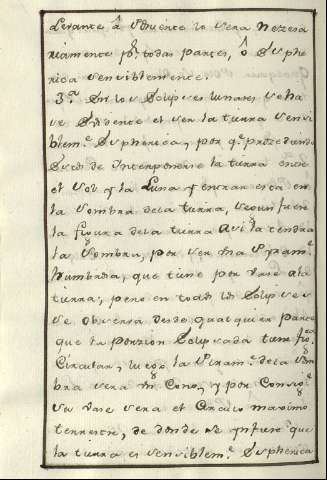 Levante â Poniente lo sera nezesa
riamente p.r todas partes, ô Esphe
rica sensiblemente.
3.a En los Eclipses lunares se ha
se Evidente el ser la tierra sensi
blem.e Espherica, y por q.e procediendo
Estos de Interponerse la tierra entre
el Sol y la Luna y entrar esta en
la sombra dela tierra, segun fuere
la figura dela tierra asi la tendra
la sombra, por ser una Piram.e
Umbrosa, que tiene por vase ala
tierra; pero en todos los Eclipses
se observa desde qualquier parte
que la porcion Eclipsada tiene fig.a
Circular, luego la Piram.e dela som
bra sera un Cono, y por Consig.e
su vase sera el Circulo maximo
terrestre, de donde se infiere que
la tierra es sensiblem.e Espherica